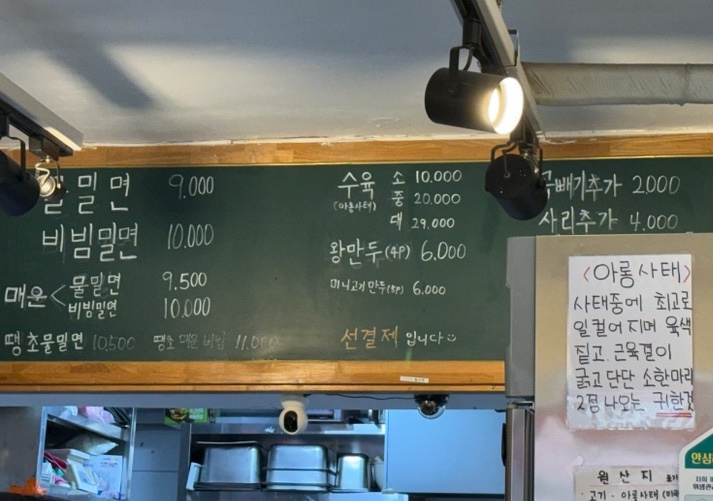 물밀면 9.000
비빔밀면 10.000
매운 < 물밀면 9.500
비빔밀면 10.000
땡초물밀면 10,500 땡초매운비빔 11.000
수육 소 10.000
(아롱사태) 중 20.000
대 29.000
왕만두(4P) 6.000
미니고기만두(5P) 6.000
선결제 입니다
곱빼기추가 2.000
사리추가 4.000
<아롱사태>
사태중에 최고로
일컬어지며 육색
짙고 근육결이
굵고 단단 소한마리
2점 나오는 귀한것
원산지
고기 - 아롱사태
안심